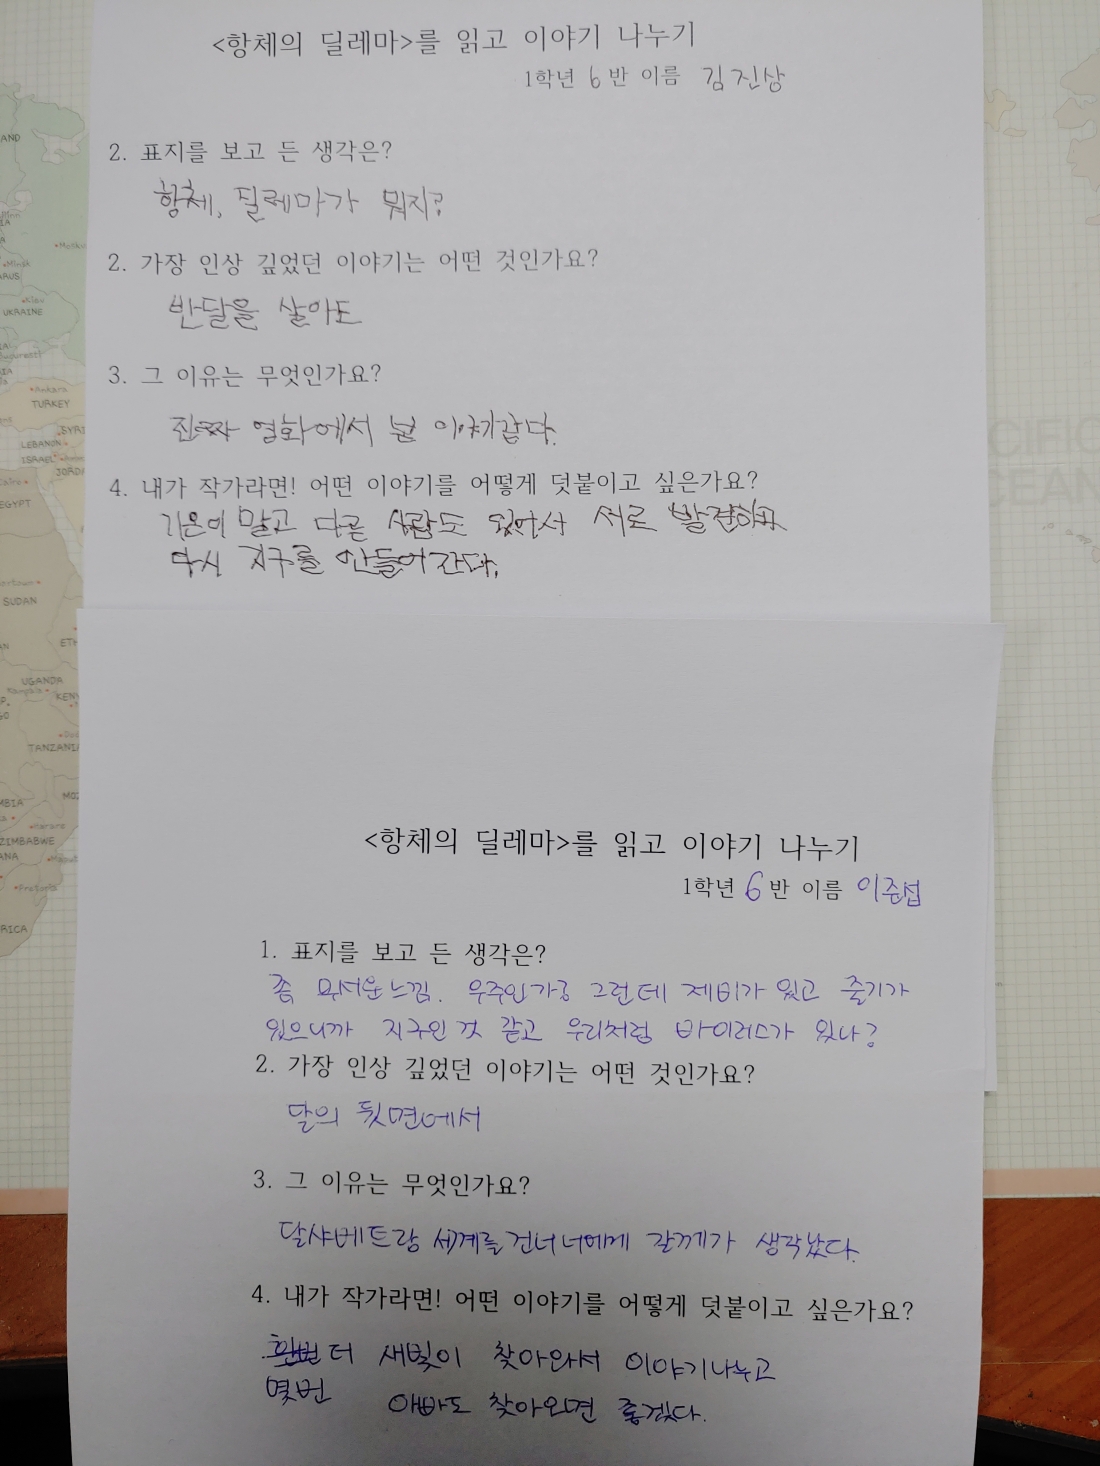 <항체의 딜레마>를 읽고 이야기 나누기
1학년 6 반 이름 김진상
2. 표지를 보고 든 생각은?
항체, 딜레마가 뭐지?
2. 가장 인상 깊었던 이야기는 어떤 것인가요?
반달을 살아도
3. 그 이유는 무엇인가요?
진짜 영화에서 본 이야기같다.
4. 내가 작가라면! 어떤 이야기를 어떻게 덧붙이고 싶은가요?
가온이 말고 다른 사람도 있어서 서로 발견하고
다시 지구를 만들어 간다.
<항체의 딜레마>를 읽고 이야기 나누기
1학년 6 반 이름 이준섭
1. 표지를 보고 든 생각은?
좀 무서운느낌. 우주인가? 그런데 제비가 있고 줄기가
있으니까 지구인 것 같고 우리처럼 바이러스가 있나?
2. 가장 인상 깊었던 이야기는 어떤 것인가요?
달의 뒷면에서
3. 그 이유는 무엇인가요?
달샤베트랑 세계를 건너 너에게 갈께가 생각났다.
4. 내가 작가라면! 어떤 이야기를 어떻게 덧붙이고 싶은가요?
더 새빛이 찾아와서 이야기나누고
몇번 아빠도 찾아오면 좋겠다.
UKRAINE
TURKEY
LEBANON
ISRAEL
EGYPT
SUDAN
UGANDA
TANZANIA
ZIMBABWE